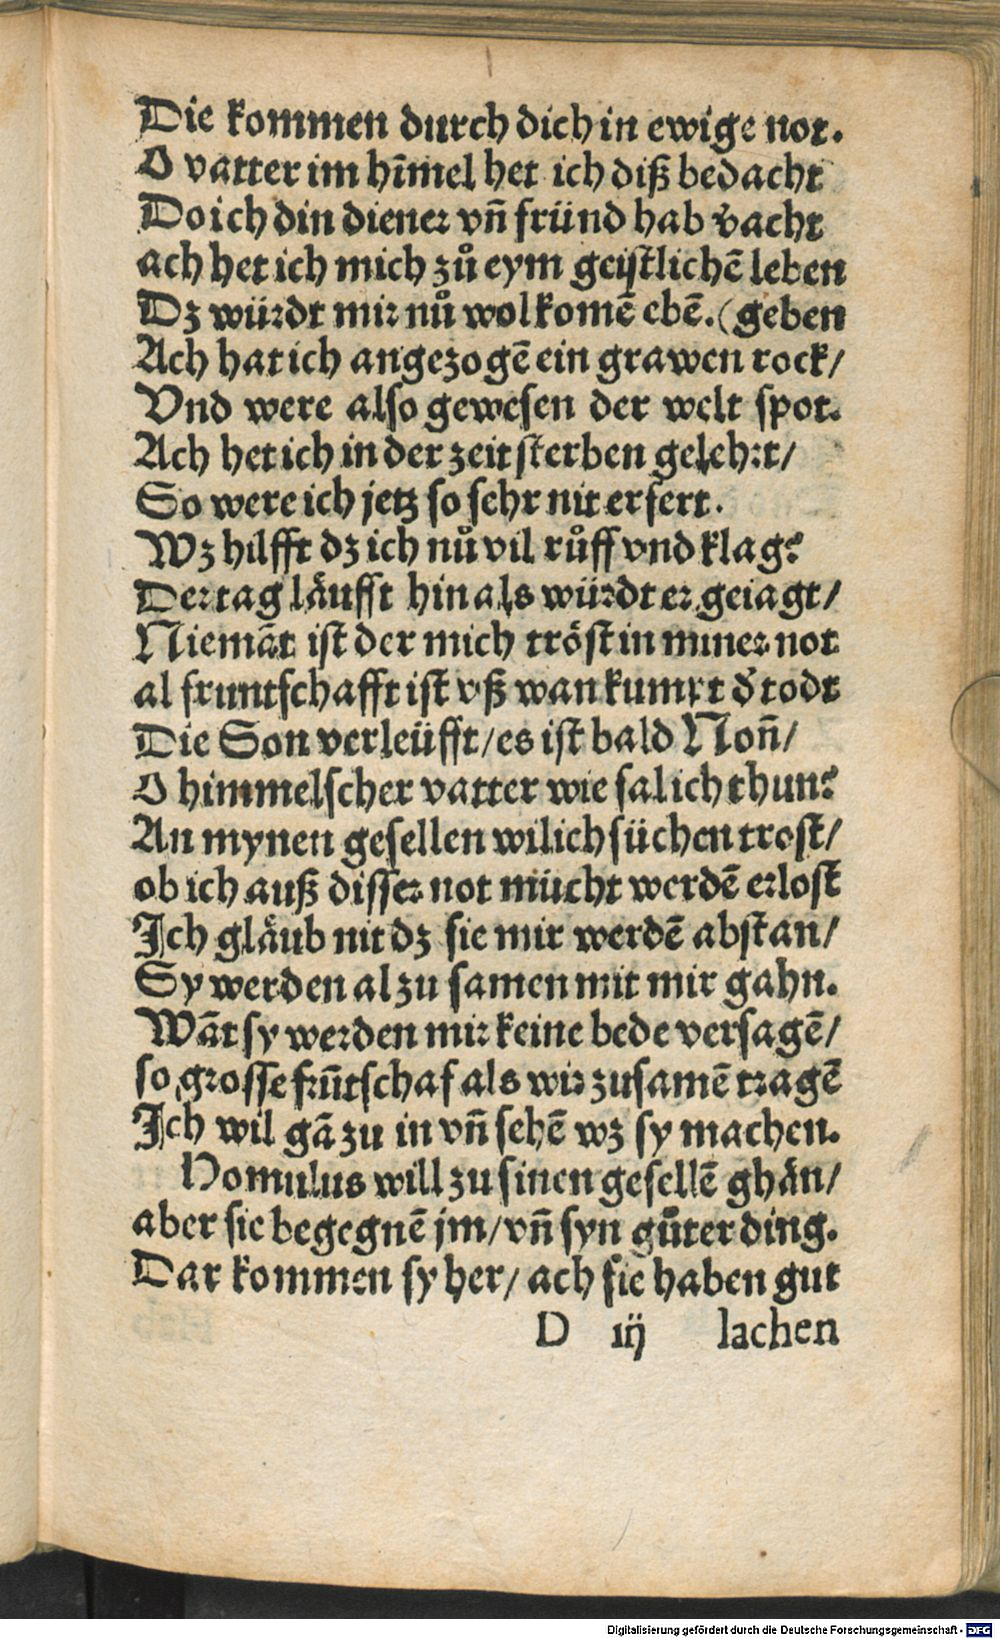 Die kommen durch dich in ewige not.
O vatter im hīmel het ich diß bedacht
Do ich din diener vñ fründ hab v̄acht
ach het ich mich zů eym geistlichē leben
Dz würdt mir nů wol komē ebē. (geben
Ach hat ich angezogē ein grawen rock/
Vnd were also gewesen der welt spot.
Ach het ich in der zeit sterben gelehrt/
So were ich jetz so sehr nit erfert.
Wz hilfft dz ich nů vil růff vnd klag?
Der tag läufft hin als würdt er geiagt/
Niemāt ist der mich tröst in miner not
al fruntschafft ist vß wan kumpt d̄ todt
Die Son verleüfft/ es ist bald Noñ/
O himmelscher vatter wie sal ich thun?
An mynen gesellen wil ich süchen trost/
ob ich auß disser not mücht werdē erlost
Ich gläub nit dz sie mir werdē abstan/
Sy werden al zu samen mit mir gahn.
Wāt sy werden mir keine bede versagē/
so grosse frūtschaf als wir zusamē tragē
Ich wil gā zu in vñ sehē wz sy machen.
Homulus will zu sinen gesellē ghän/
aber sie begegnē jm/ vñ syn gůter ding.
Dar kommen sy her/ ach sie haben gut
D iij lachen
Digitalisierung gefördert durch die Deutsche Forschungsgemeinschaft - DFG